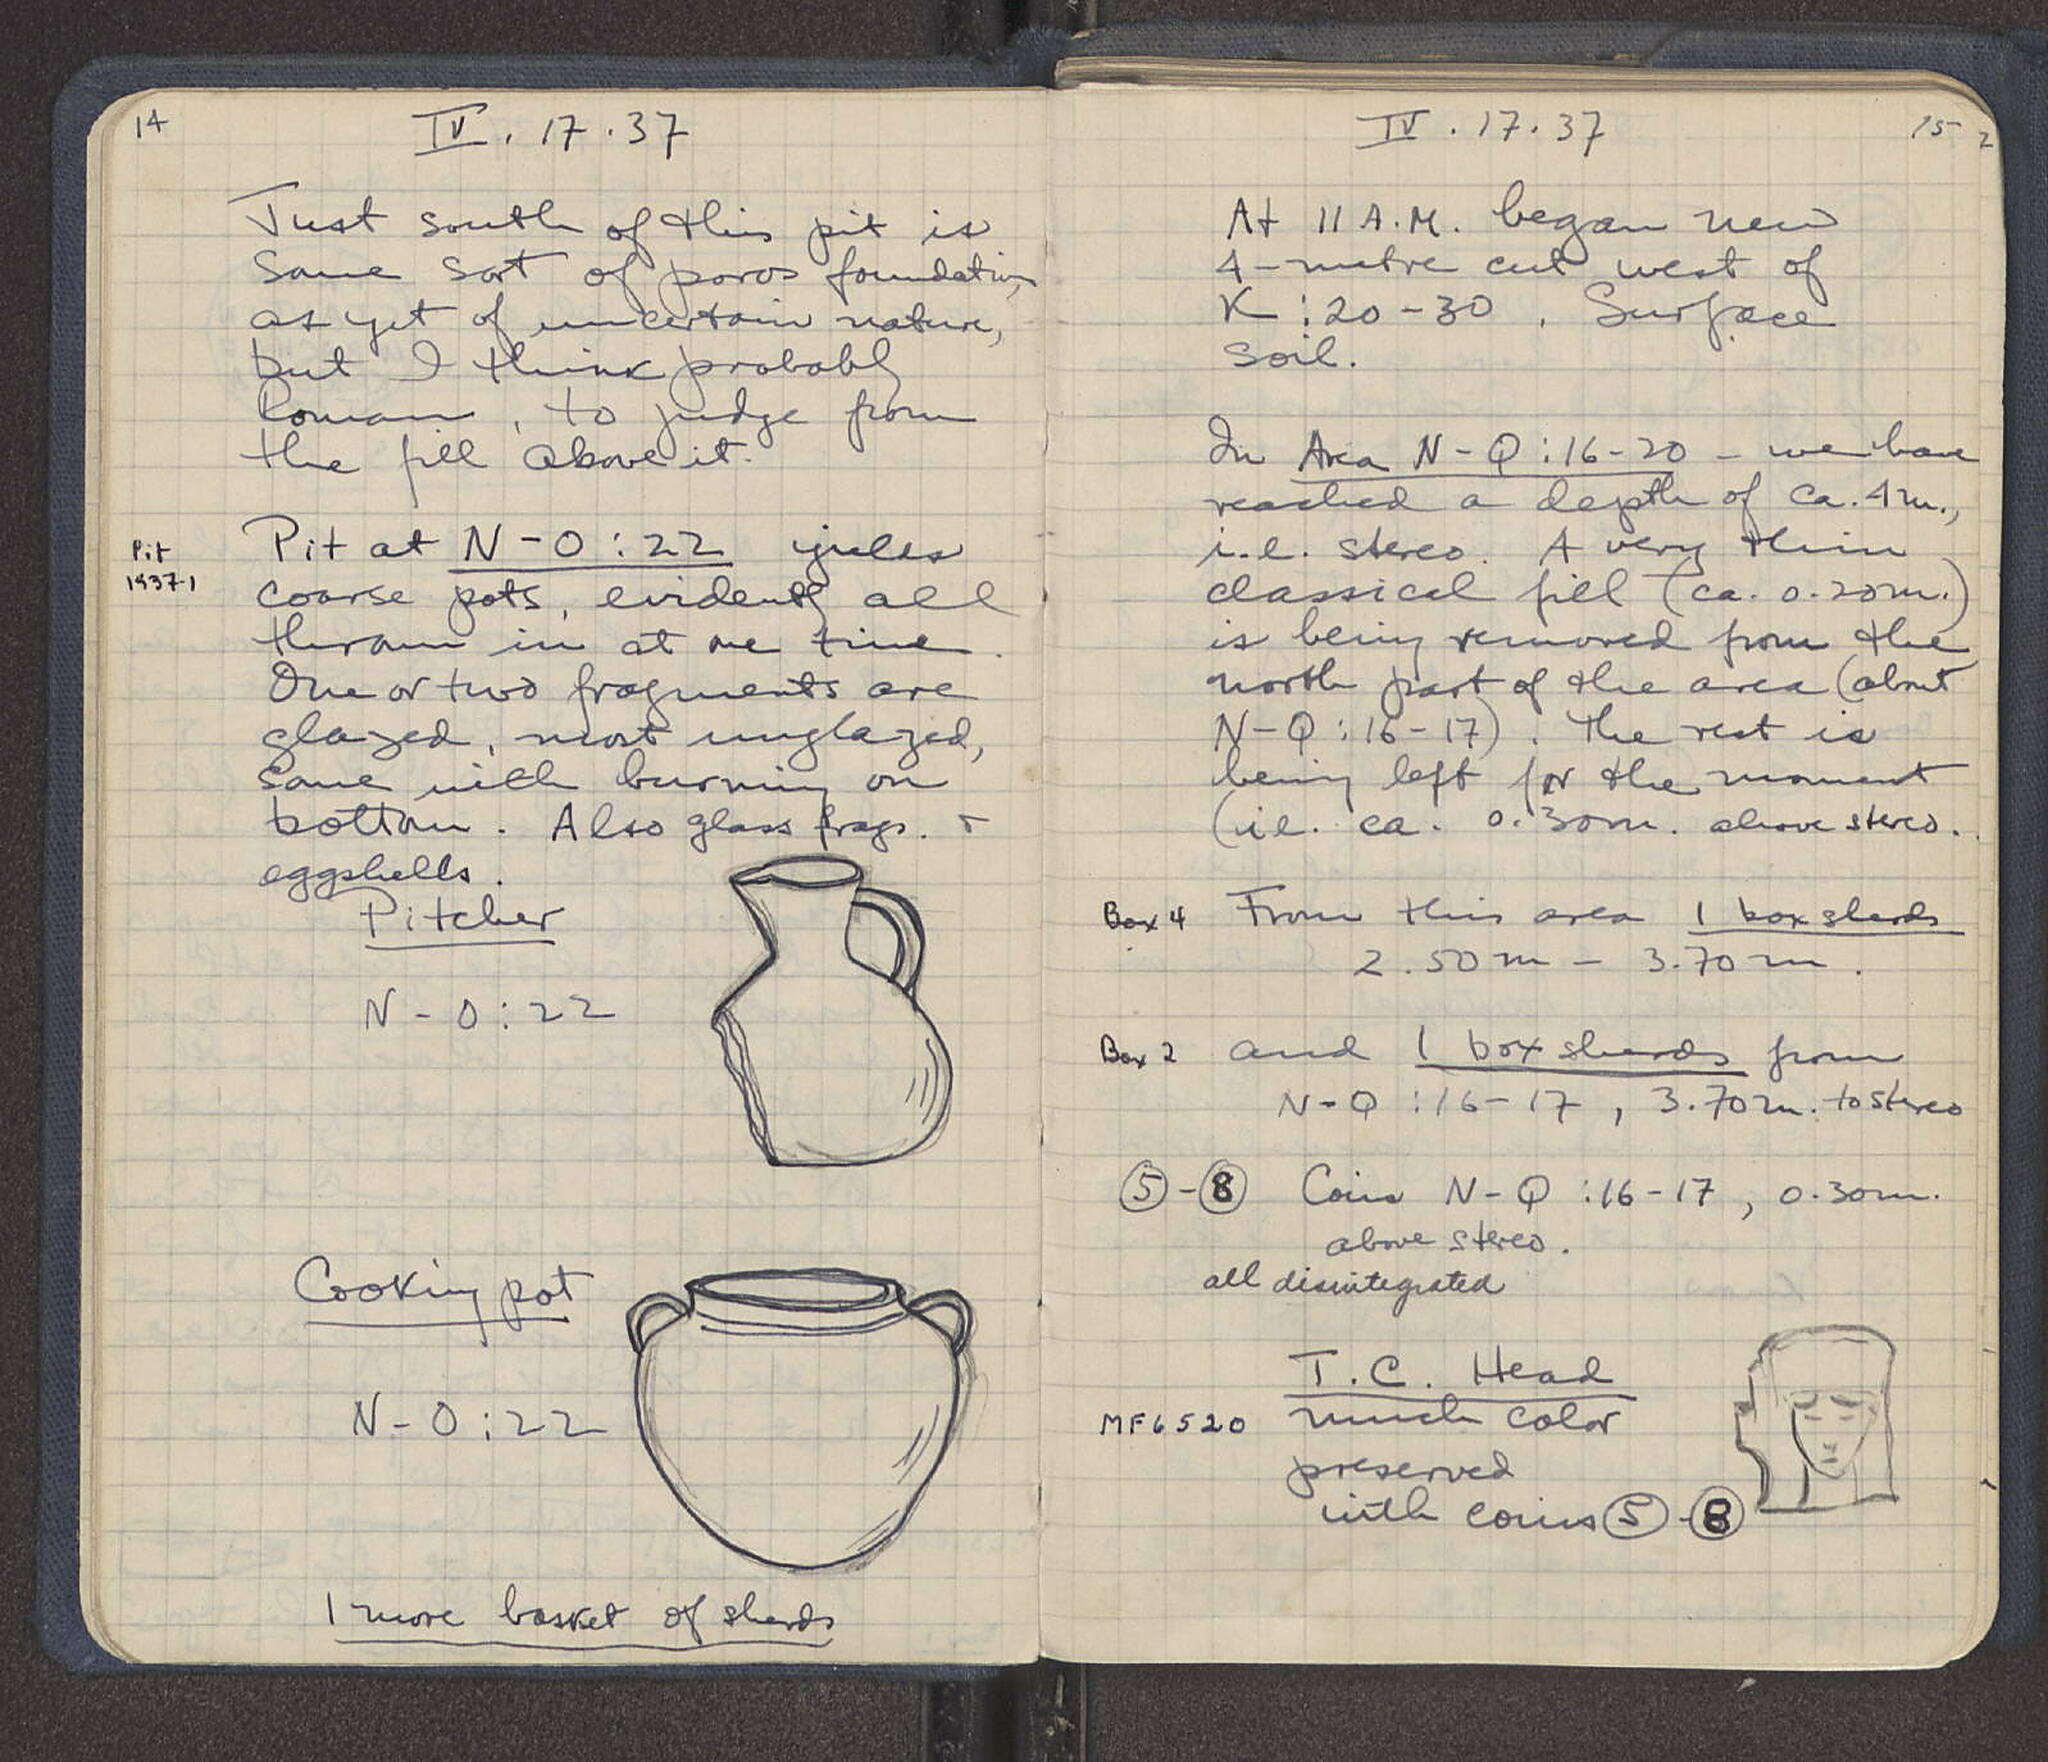 14
IV . 17 . 37
Just south of this pit is
some sort of poros foundation,
as yet of uncertain nature,
but I think probably
Roman, to judge from
the fill above it.
Pit
1937-1
Pit at N-O:22 yields
coarse pots, evidently all
thrown in at one time.
One or two fragments are
glazed, most unglazed,
some with burning on
bottom. Also glass frags. +
eggshells.
Pitcher
N-O:22
Cooking pot
N-O:22
1 more basket of sherds
IV . 17 . 37
15
2
At 11 A.M. began new
4-metre cut west of
K:20-30. Surface
soil.
In Area N-Q:16-20 - we have
reached a depth of ca. 4m.,
i.e. stereo. A very thin
classical fill (ca. 0.20m.)
is being removed from the
north part of the area (about
N-Q:16-17). The rest is
being left for the moment
(i.e. ca. 0.30m. above stereo.
Box 4 From this area 1 box sherds
2.50m - 3.70m.
Box 2 and 1 box sherds from
N-Q:16-17, 3.70m. to stereo
5 - 8 Coins N-Q:16-17, 0.30m.
above stereo.
all disintegrated
T.C. Head
MF6520 much color
preserved
with coins 5 - 8